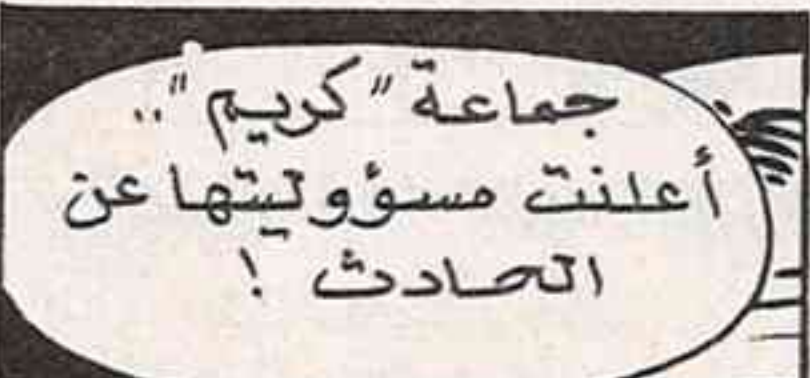 جماعة "كريم"..
أعلنت مسؤوليتها عن
الحادث !